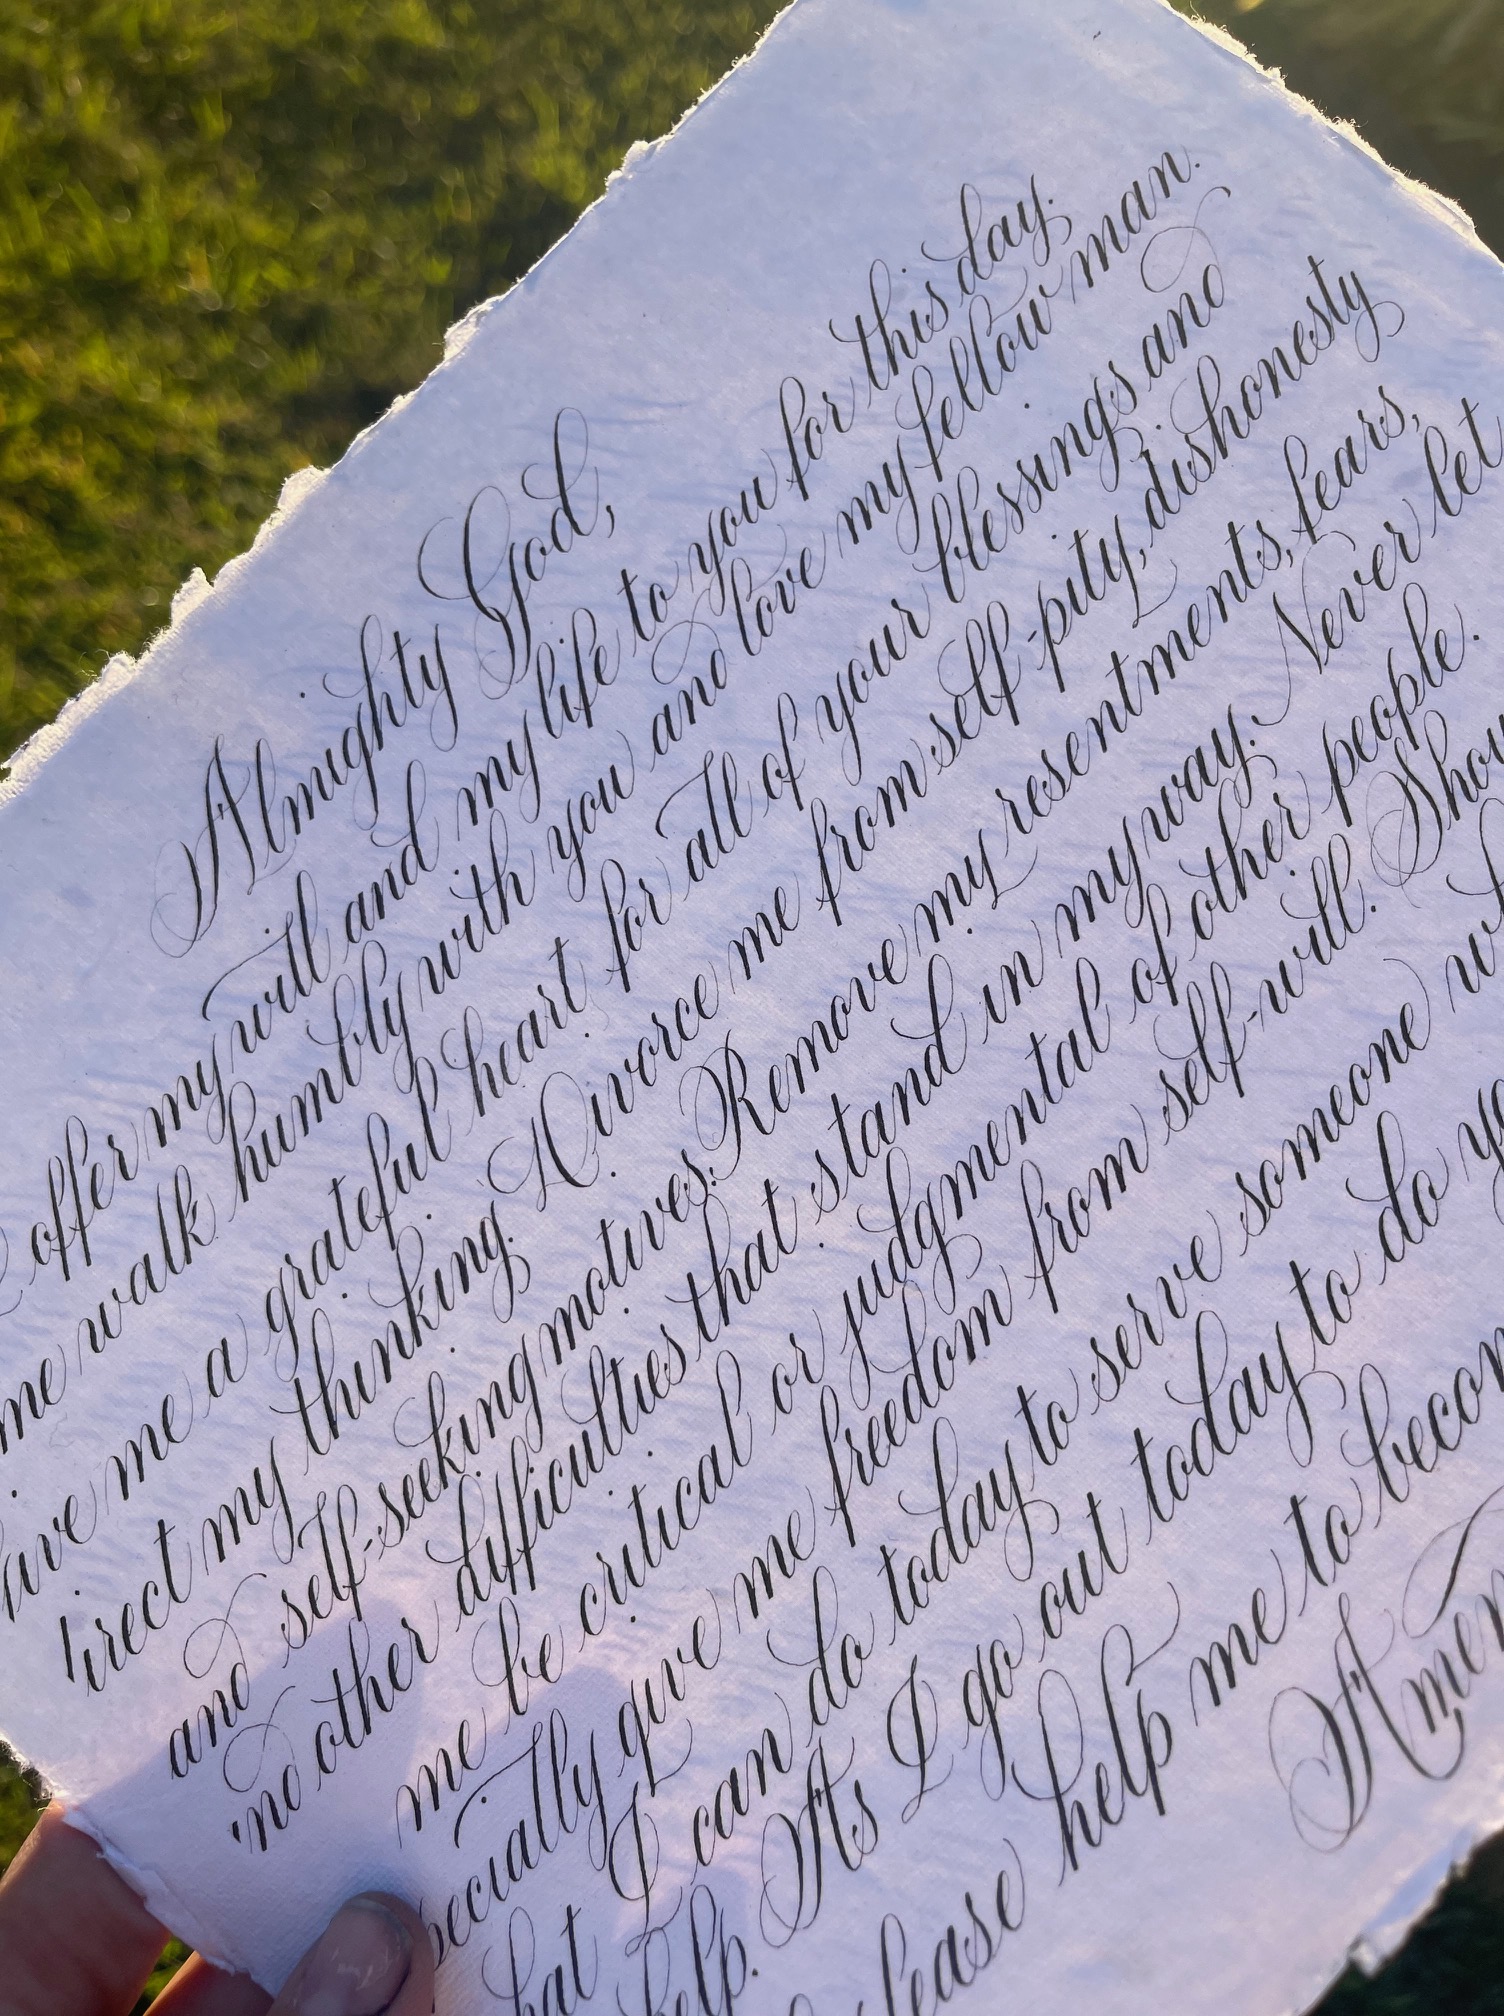 Almighty God,
offer my will and my life to you for this day.
me walk humbly with you and love my fellow man.
ive me a grateful heart for all of your blessings and
irect my thinking. Divorce me from self-pity, dishonesty
and self-seeking motives. Remove my resentments, fears,
no other difficulties that stand in my way. Never let
me be critical or judgmental of other people.
pecially give me freedom from self-will. Show
hat I can do today to serve someone w
elp. As I go out today to do yo
lease help me to becom
Amen